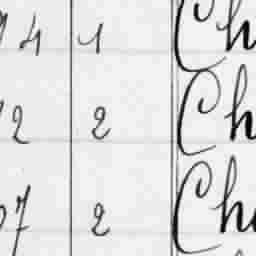 4 1 Ch
2 2 Ch
7 2 Ch